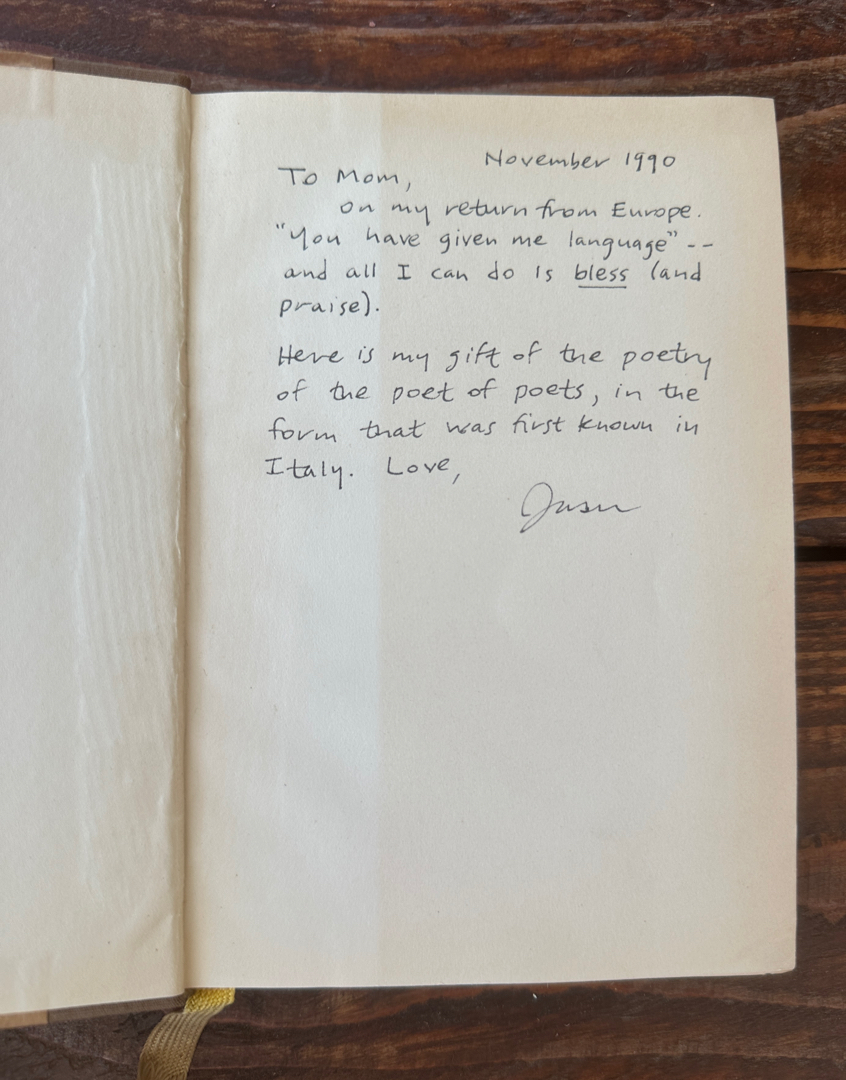 November 1990
To Mom,
on my return from Europe.
"You have given me language" --
and all I can do is bless (and
praise).
Here is my gift of the poetry
of the poet of poets, in the
form that was first known in
Italy. Love,